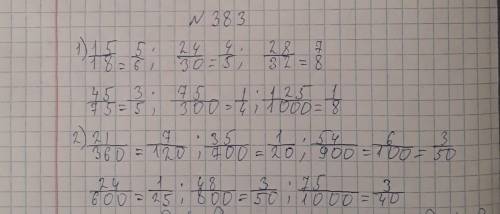 № 383
1) 15/18 = 5/6; 24/30 = 4/5; 28/32 = 7/8
45/75 = 3/5; 75/300 = 1/4; 125/1000 = 1/8
2) 21/360 = 7/120; 35/700 = 1/20; 54/900 = 6/100 = 3/50
24/600 = 1/25; 48/800 = 3/50; 75/1000 = 3/40